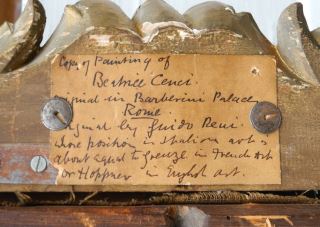 Copy of Painting of
Beatrice Cenci
riginal in Barberini Palace
Rome
riginal by Guido Reni
whose position in Italian art is
about equal to Greuze in French Art
or Hoppner in English art.